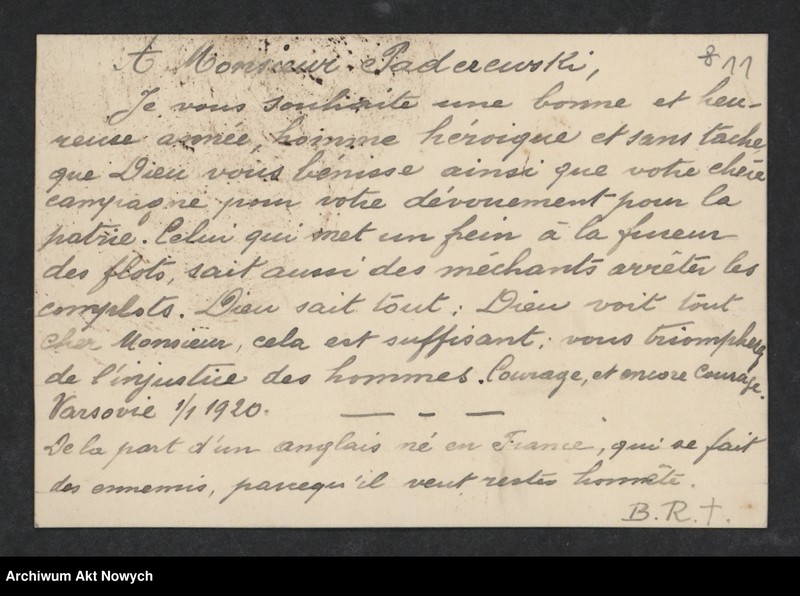 A Monsieur Paderewski,
811
Je vous souhaite une bonne et heu-
reuse année, homme héroique et sans tache
que Dieu vous bénisse ainsi que votre chère
campagne pour votre dévouement pour la
patrie. Celui qui met un frein à la fureur
des flots, sait aussi des méchants arrêter les
complots. Dieu sait tout; Dieu voit tout
cher Monsieur, cela est suffisant; vous triompherez
de l'injustice des hommes. Courage, et encore Courage.
Varsovie 1/1 1920. — - —
De la part d'un anglais né en France, qui se fait
des ennemis, parcequ'il veut rester honnête.
B.R.†.
Archiwum Akt Nowych